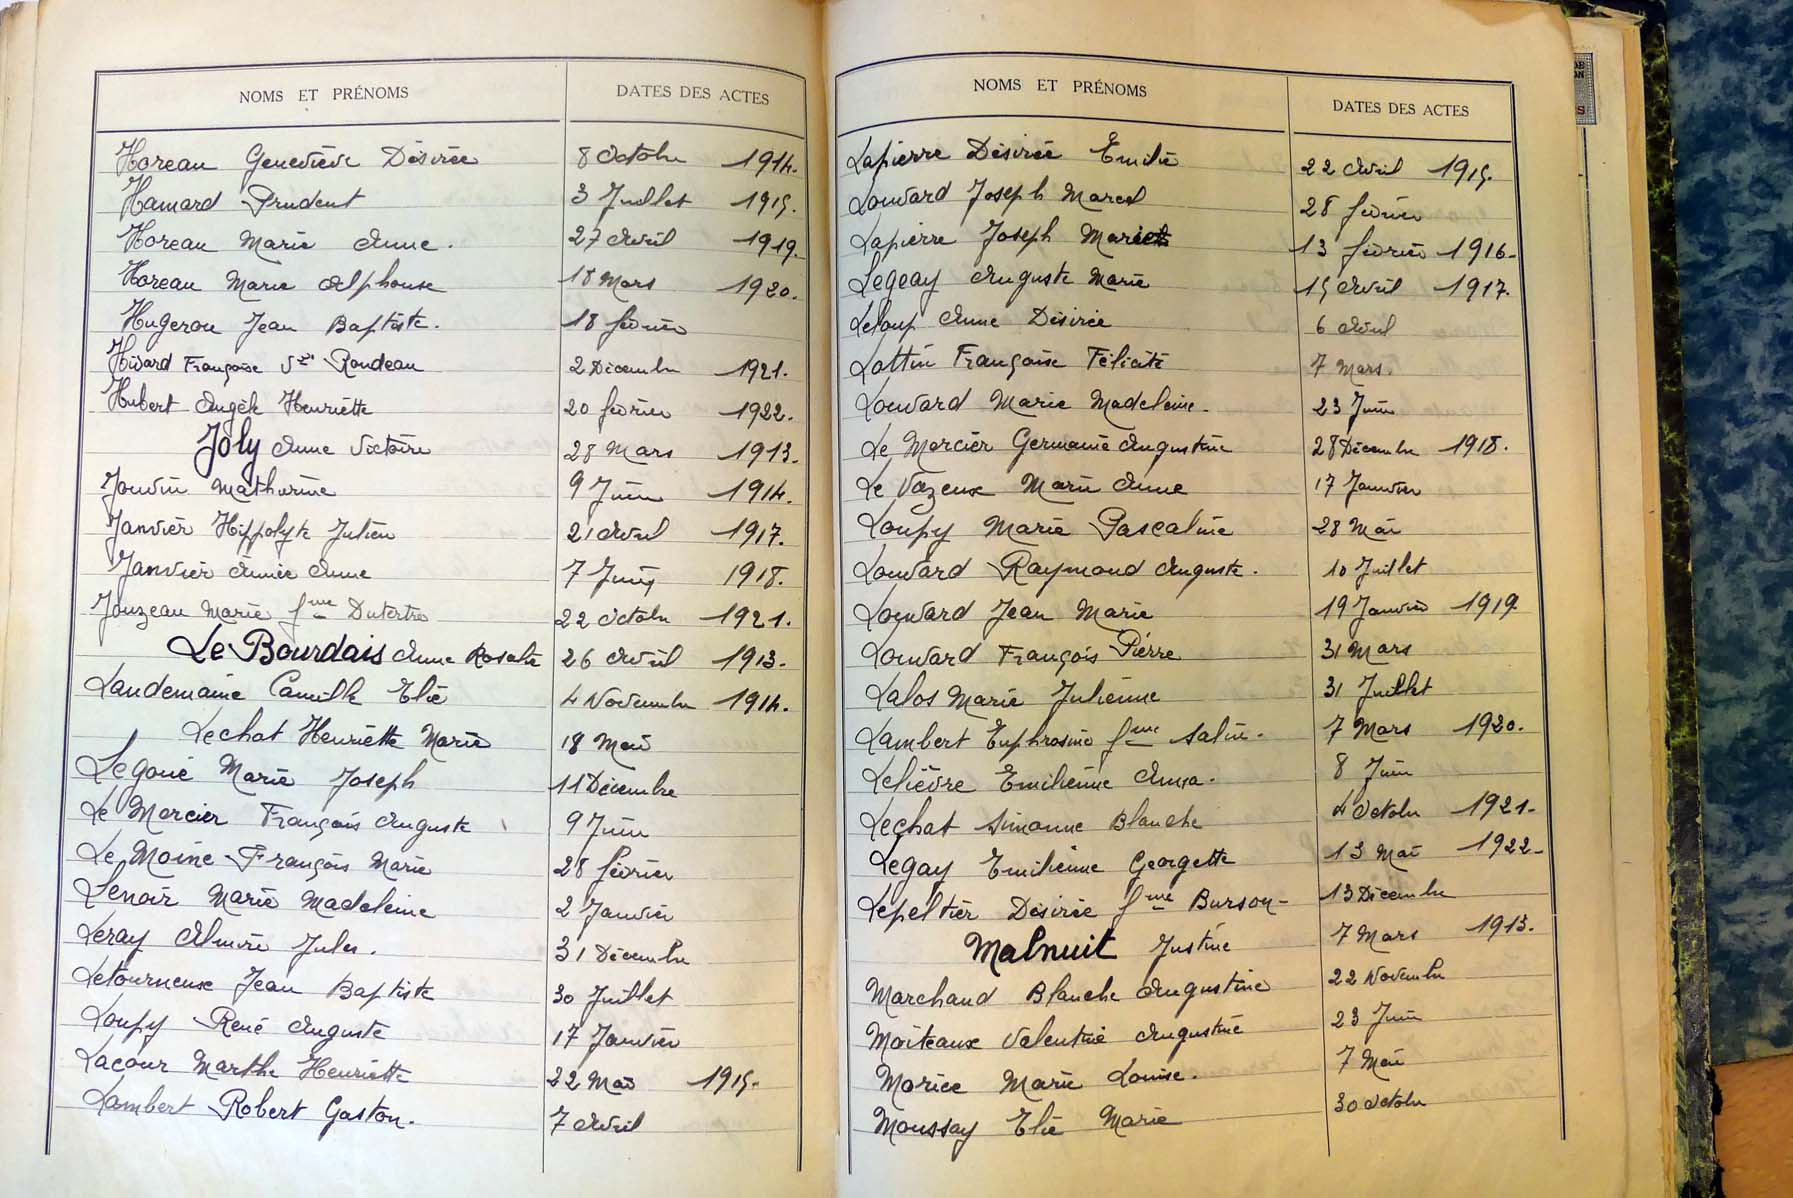 NOMS ET PRÉNOMS DATES DES ACTES
Horeau Geneviève Désirée 8 Octobre 1914.
Hamard Prudent 3 Juillet 1915.
Horeau Marie Anne. 27 Avril 1919.
Horeau Marie Alphonse 18 Mars 1920.
Hugerou Jean Baptiste. 18 février
Hivard Françoise Rondeau 2 Décembre 1921.
Hubert Angèle Henriette 20 février 1922.
Joly Anne Victoire 28 Mars 1913.
Jouvin Mathurine 9 Juin 1914.
Janvier Hippolyte Julien 21 Avril 1917.
Janvier Aimée Anne 7 Juin 1918.
Jouzeau Marie fme Dutertre 22 Octobre 1921.
Le Bourdais Anne Rosalie 26 Avril 1913.
Landemaine Camille Elie 4 Novembre 1914.
Lechat Henriette Marie 18 Mai
Legoué Marie Joseph 11 Décembre
Le Mercier François Auguste 9 Juin
Le Moine François Marie 28 février
Lenoir Marie Madeleine 2 Janvier
Leray Almire Jules. 31 Décembre
Letourneux Jean Baptiste 30 Juillet
Loupy René Auguste 17 Janvier
Lacour Marthe Henriette 22 Mai 1915.
Lambert Robert Gaston. 7 Avril
NOMS ET PRÉNOMS DATES DES ACTES
Lapierre Désirée Emilie 22 Avril 1915.
Louvard Joseph Marcel 28 février
Lapierre Joseph Marie 13 février 1916.
Legeay Auguste Marie 15 Avril 1917.
Leloup Anne Désirée 6 Avril
Lottin Françoise Félicité 7 Mars.
Louvard Marie Madeleine. 23 Juin
Le Mercier Germaine Augustine 28 Décembre 1918.
Le Vazeux Marie Anne 17 Janvier
Loupy Marie Pascaline 28 Mai
Louvard Raymond Auguste. 10 Juillet
Louvard Jean Marie 19 Janvier 1919.
Louvard François Pierre 31 Mars
Lalos Marie Julienne 31 Juillet
Lambert Euphrosine fme Salin. 7 Mars 1920.
Lelièvre Emilienne Anna. 8 Juin
Lechat Simonne Blanche 4 Octobre 1921.
Legay Emilienne Georgette 13 Mai 1922.
Lepeltier Désirée fme Burson 13 Décembre
Malnuit Justine 7 Mars 1913.
Marchand Blanche Augustine 22 Novembre
Moiteaux Valentine Augustine 23 Juin
Morice Marie Louise. 7 Mai
Moussay Elie Marie 30 Octobre